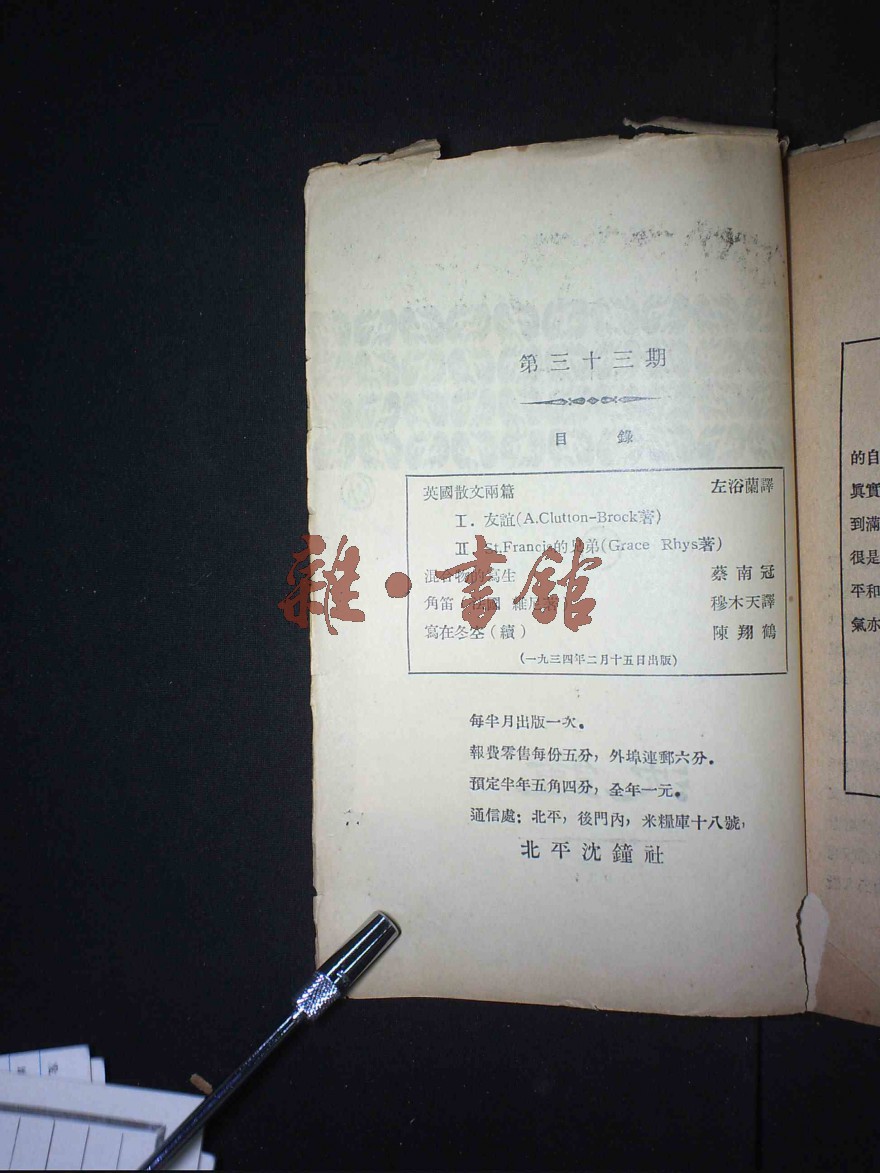 第三十三期
目錄
英國散文兩篇 左浴蘭譯
I. 友誼(A.Clutton-Brock著)
II. St.Francis的兄弟(Grace Rhys著)
混合物的寫生 蔡南冠
角笛(法國 維尼著) 穆木天譯
寫在冬空(續) 陳翔鶴
(一九三四年二月十五日出版)
每半月出版一次。
報費零售每份五分,外埠連郵六分。
預定半年五角四分,全年一元。
通信處:北平,後門內,米糧庫十八號,
北平沈鐘社
雜·書館
的自
眞實
到滿
很是
平和
氣亦